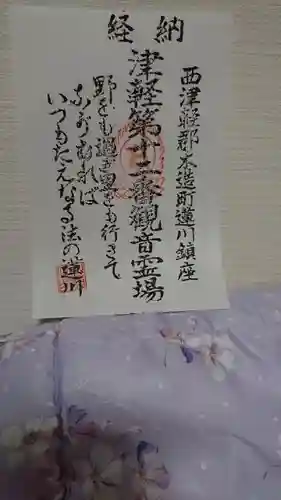 納経
西津軽郡木造町蓮川鎮座
津軽第十二番観音霊場
野をも過ぎ里をも行きて
ながむれば
いつもたえなる法の蓮川